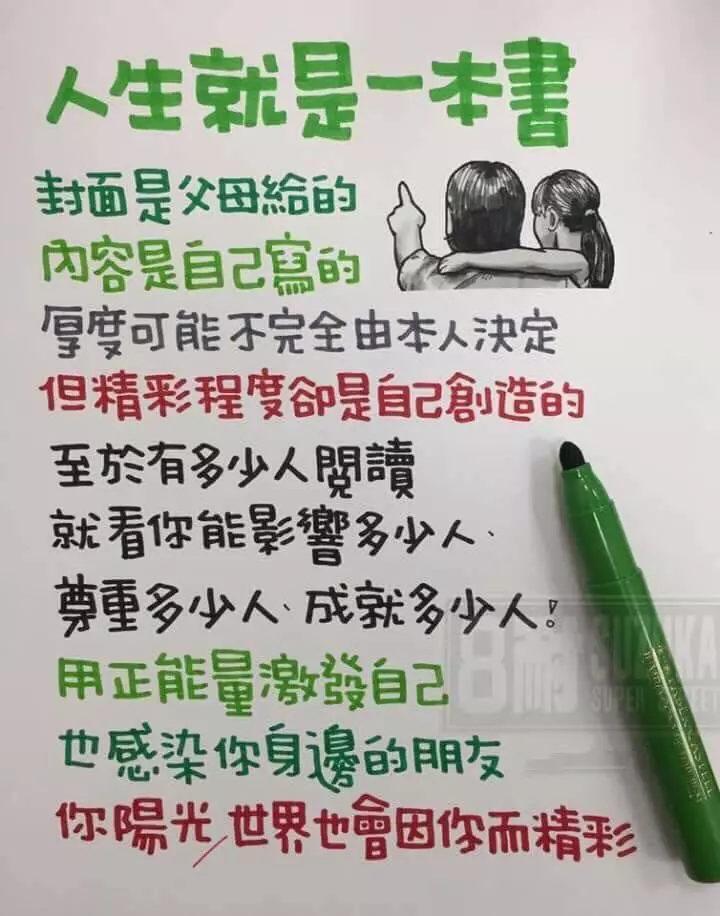 人生就是一本書
封面是父母給的
內容是自己寫的
厚度可能不完全由本人決定
但精彩程度卻是自己創造的
至於有多少人閱讀
就看你能影響多少人、
尊重多少人、成就多少人!
用正能量激發自己
也感染你身邊的朋友
你陽光,世界也會因你而精彩
SUPER